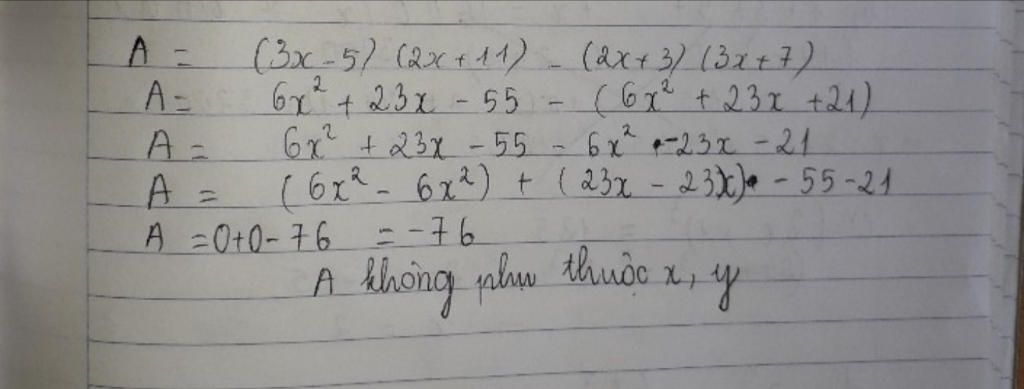 A = (3x - 5) (2x + 11) - (2x + 3) (3x + 7)
A = 6x² + 23x - 55 - (6x² + 23x + 21)
A = 6x² + 23x - 55 - 6x² - 23x - 21
A = (6x² - 6x²) + (23x - 23x) - 55 - 21
A = 0 + 0 - 76 = -76
A không phụ thuộc x, y